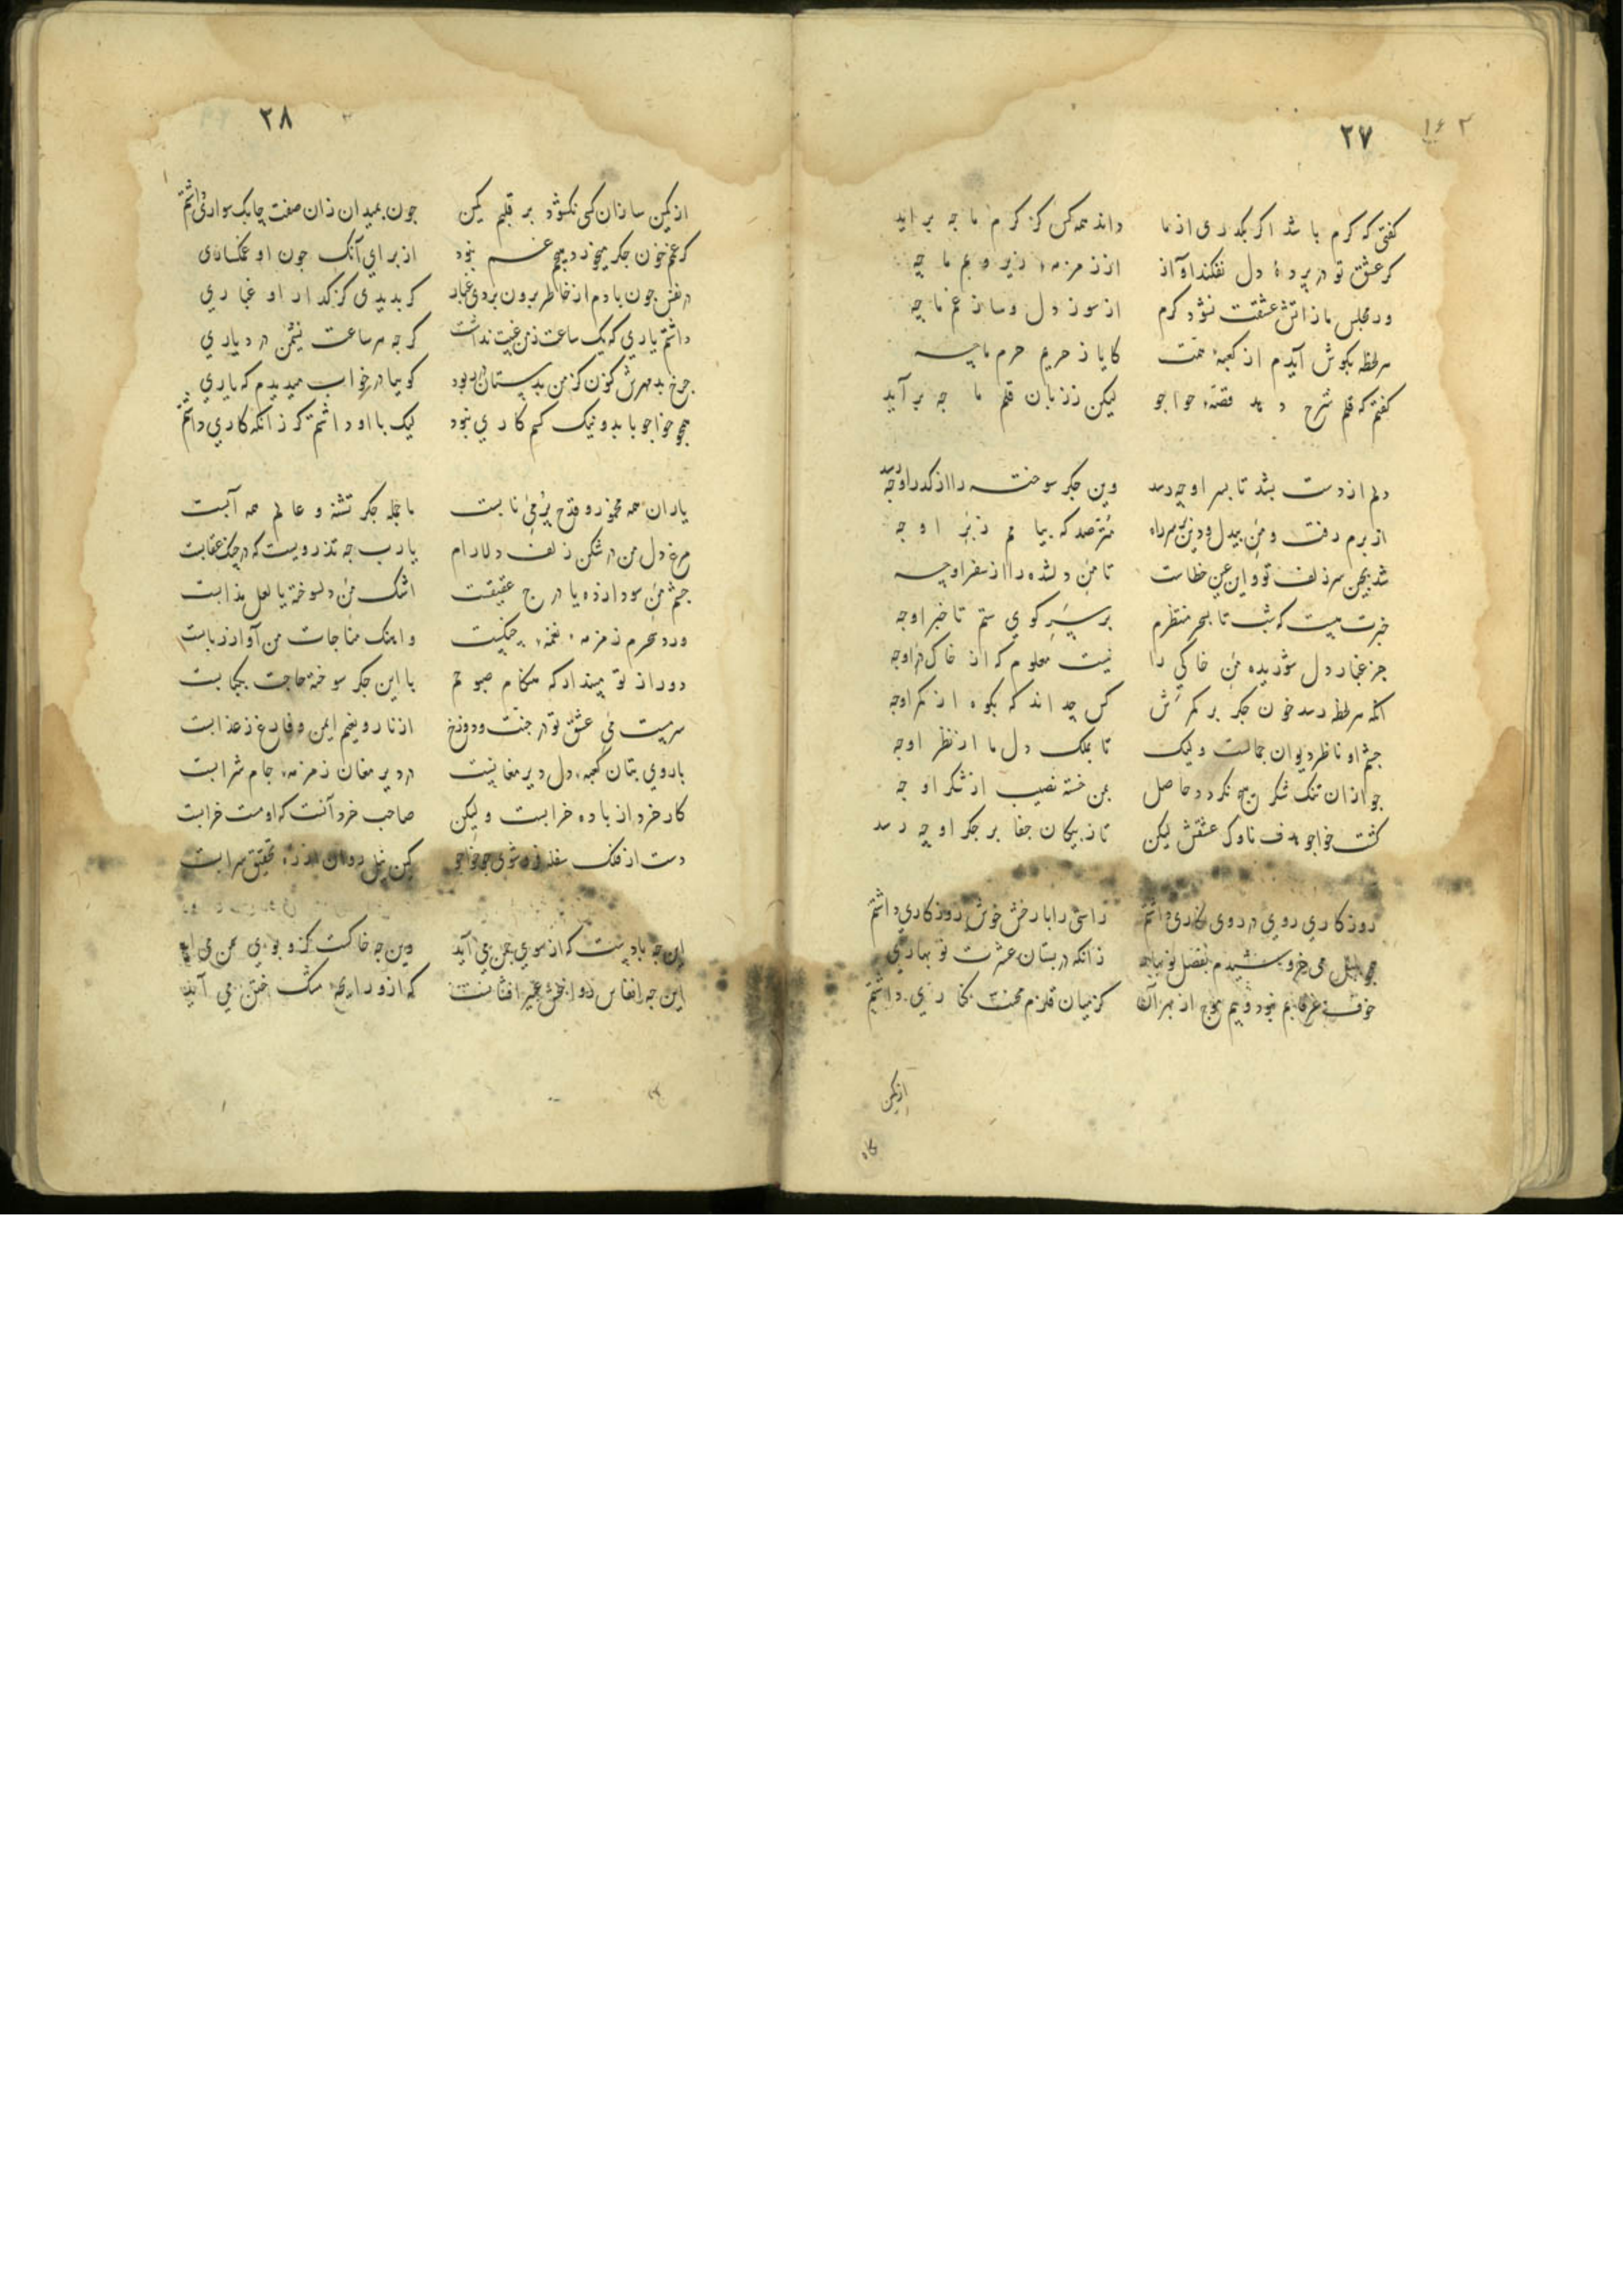 ۱۶۲
۲۷
کفتی که کرم باشد اکر بکذری از ما داند همه کس کز کرم ما چه براید
کر عشق تو در پردهٔ دل نفکند آواز از زمزمهٔ زیر و بم ما چه
ور مجلس ما ز اتش عشقت نشود کرم از سوز دل و ساز غم ما چه
هر لحظه بکوش آیدم از کعبهٔ همت کایا ز حریم حرم ما چه
کفتم که قلم شرح دهد قصهٔ خواجو لیکن ز زبان قلم ما چه بر آید
دلم از دست بشد تا بسر او چه رسد وین جکر سوخته را از کذر او چه رسد
از برم رفت و من بیدل و دین بر سر راه مترصد که بیایم ز بر او چه
شد بچین سر زلف تو و این عین خطاست تا من دلشده را از سفر او چه
خبرت نیست که شب تا بسحر منتظرم بر سر کوی ستم تا خبر او چه
جز غبار دل شوریده من خاکی را نیست معلوم که از خاک در او چه
انکه هر لحظه رسد خون جکر بر کمرش کس چه داند که بکوه از کمر او چه
چشم او ناظر دیوان جمالست ولیک تا بملک دل ما از نظر او چه
چو از ان تنک شکر هیچ نکردد حاصل بمن خسته نصیب از شکر او چه
کشت خواجو هدف ناوک عشقش لیکن تا ز پیکان جفا بر جکر او چه رسد
روزکاری روی در روی نکاری داشتم راستی را با رخش خوش روزکاری داشتم
همچو بلبل می خروشیدم بفصل نوبهار زانکه در بستان عشرت نوبهاری
خوف غرقابم نبود و بیم موج از بهر آنک کز میان قلزم محنت کناری داشتم
از کمین
۲۸
از کمین سازان کسی نکشود بر قلبم کمین چون بمیدان زان صفت چابک سواری داشتم
کر غمم خون جکر میخورد هیچم غم نبود از برای آنک چون او غمکساری
در نفس چون بادم از خاطر برون بردی غبار کر بدیدی کز کذار او غباری
داشتم یاری که یک ساعت ز من غیبت نداشت کر چه هر ساعت نشیمن در دیاری
چرخ بد مهرش کنون کز من بدستان در ربود کوییا در خواب میدیدم که یاری
همچو خواجو با بد و نیک کسم کاری نبود لیک با او داشتم کر زانکه کاری داشتم
یاران همه مخمور و قدح پر می نابست ما جمله جکر تشنه و عالم همه آبست
مرغ دل من در شکن زلف دلارام یا رب چه تذرویست که در چنک عقابست
چشم من سودازده یا درج عقیقست اشک من دلسوخته یا لعل مذابست
ورد سحرم زمزمهٔ نغمهٔ چنکست وآهنک مناجات من آواز ربابست
دور از تو مپندار که هنکام صبوحم با این جکر سوخته حاجت بکبابست
سرمست می عشق تو در جنت و دوزخ از نار و نعیم ایمن و فارغ ز عذابست
با روی بتان کعبهٔ دل دیر مغانیست در دیر مغان زمزمهٔ جام شرابست
کار خرد از باده خرابست ولیکن صاحب خرد آنست که او مست خرابست
دست از فلک سفله فرو شوی چو خواجو کین نیل روان در ره تحقیق سرابست
این چه بادیست که از سوی چمن می آید وین چه خاکست کزو بوی سمن می آید
این چه انفاس روانبخش عبیر افشانست که ازو رایحهٔ مشک ختن می آید